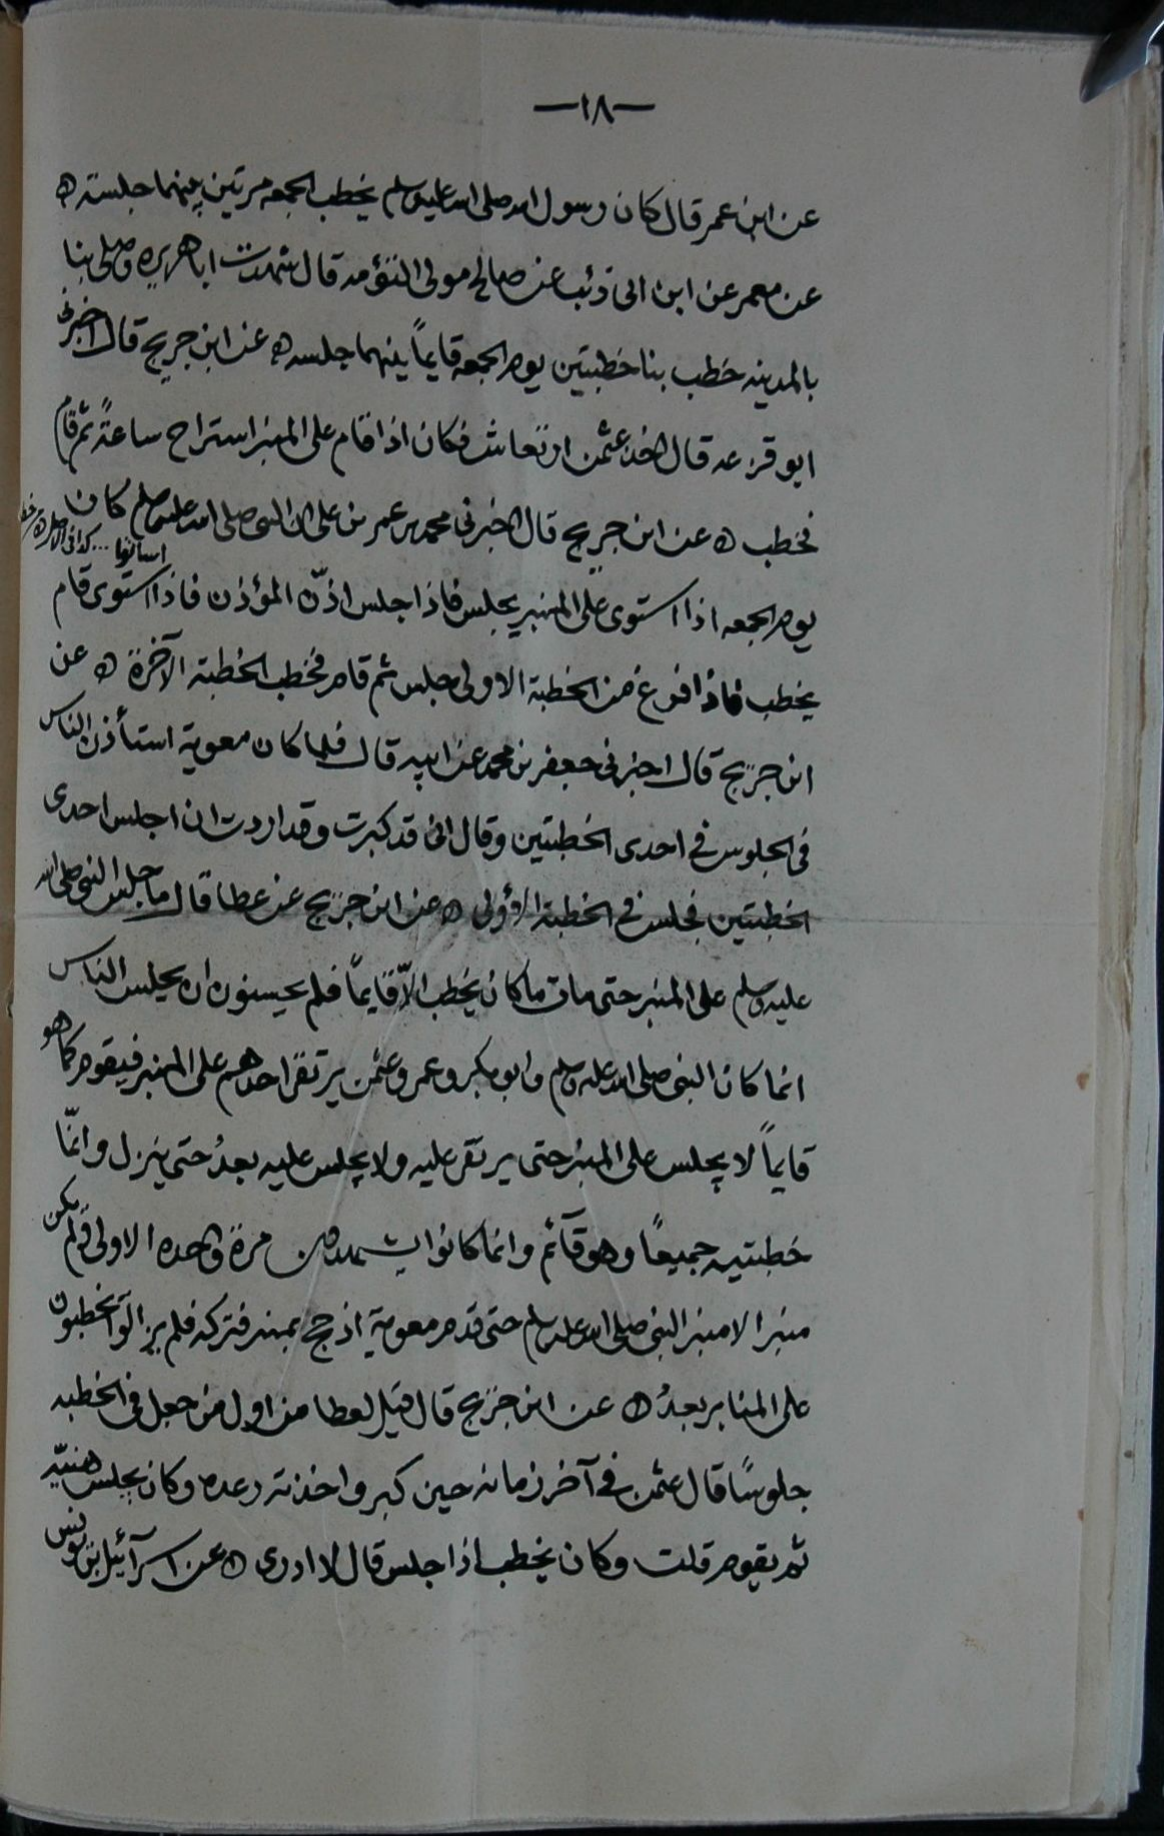 —١٨—
عن ابن عمر قال كان رسول الله صلى الله عليه وسلم يخطب الجمعه مرتين بينهما جلسته ه
عن معمر عن ابن ابى ذئب عن صالح مولى التؤمه قال شهدت ابا هريره وصلى بنا
بالمدينه خطب بنا خطبتين يوم الجمعه قايماً بينهما جلسه ه عن ابن جريج قال اخبرنى
ابو قزعه قال اخذ عثمن ارتعاش فكان اذا قام على المنبر استراح ساعةً ثم قام
فخطب ه عن ابن جريج قال اخبرنى محمد بن عمر بن على ان النبى صلى الله عليه وسلم كان
يوم الجمعه اذا استوى على المنبر يجلس فاذا جلس اذّن المؤذن فاذا استوى قام
يخطب فاذا افرغ من الخطبة الاولى جلس ثم قام فخطب الخطبته الآخرة ه عن
ابن جريج قال اخبرنى جعفر بن محمد عن ابيه قال فلما كان معوية استأذن الناس
فى الجلوس فى احدى الخطبتين وقال انى قد كبرت وقد اردت ان اجلس احدى
الخطبتين فجلس فى الخطبة الاؤولى ه عن ابن جريج عن عطا قال ما جلس النبى صلى الله
عليه وسلم على المنبر حتى مات ما كان يخطب الاّ قايماً فلم يحسبون ان يجلس الناس
انما كان النبى صلى الله عليه وسلم وابو بكر وعمر وعثمن يرتقى احدهم على المنبر فيقوم كما هو
قايماً لا يجلس على المنبر حتى يرتقى عليه ولا يجلس عليه بعدُ حتى ينزل وانّما
خطبتيه جميعًا وهو قآئم وانما كانوا يشهدون مرة واحده الاولى قولم يكن
منبر الا منبر النبى صلى الله عليه وسلم حتى قدم معوية اذ حج بمنبر فتركه فلم يزالوا يخطبون
على المنابر بعدُ ه عن ابن جريج قال قيل لعطا من اول من جعل فى الخطبه
جلوسًا قال عثمن فى آخر زمانه حين كبر واخذته رعده وكان يجلس هنيّه
ثم يقوم قلت وكان يخطب اذا جلس قال لا ادرى ه عن اسرآئيل بن يونس